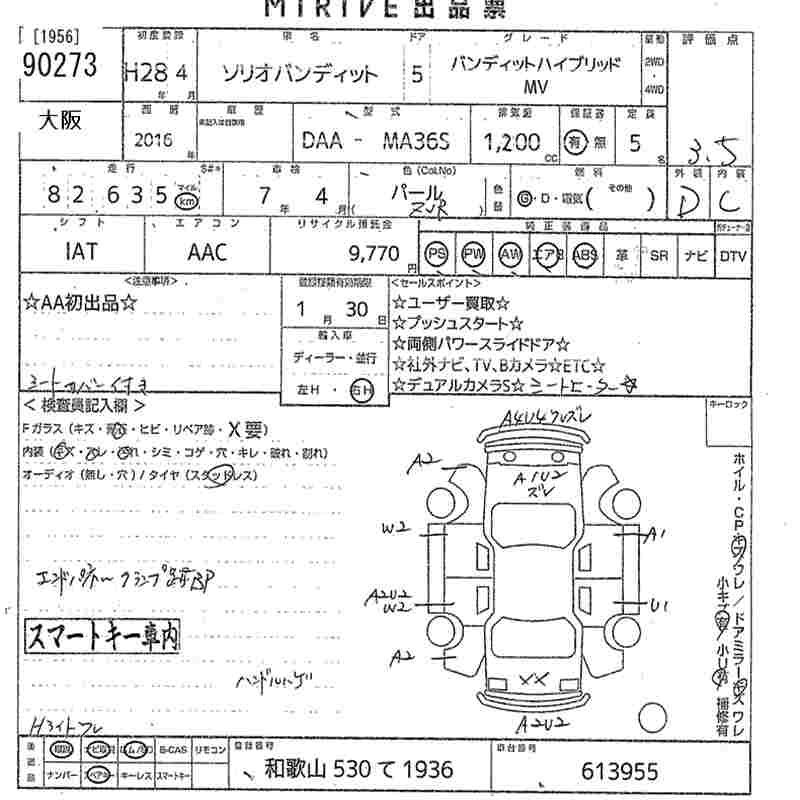 MIRIVE出品票
[1956]
90273
大阪
初度登録
H28 4
年 月
車名
ソリオバンディット
ドア
5
グレード
バンディットハイブリッド
MV
駆動
2WD
・
4WD
評価点
3.5
西暦
2016
年
車歴
型式
DAA - MA36S
排気量
1,200
CC
保証書
有・無
定員
5
名
走行
82635
マイル
km
S#*
車検
7 4
年 月
色(Col.No)
パール
ZVR
色替
燃料
G・D・電気( その他 )
外装
D
内装
C
シフト
IAT
エアコン
AAC
リサイクル預託金
9,770
円
純正装備品
PS PW AW エアB ABS 革 SR ナビ DTV
<注意事項>
☆AA初出品☆
シートカバー付き
登録書類有効期限
1 30
月 日
輸入車
ディーラー・並行
左H・右H
<セールスポイント>
☆ユーザー買取☆
☆プッシュスタート☆
☆両側パワースライドドア☆
☆社外ナビ、TV、Bカメラ☆ETC☆
☆デュアルカメラS☆シートヒーター☆
キーロック
<検査員記入欄>
Fガラス(キズ・飛石・ヒビ・リペア跡・X要)
内装(キズ・スレ・汚れ・シミ・コゲ・穴・キレ・破れ・割れ)
オーディオ(無し・穴)/タイヤ(スタッドレス)
エンドパネルクランプ跡BP
スマートキー車内
ハンドルハゲ
Hライトスレ
A4U4ワレズレ
A1U2
ズレ
A2
W2
A2U2
W2
A2
A1
U1
XX
A2U2
ホイル・CPキズワレ/ドアミラーキズワレ
小キズ有 小U有 補修有
後日品
取説 ナビ取説 B-CAS リモコン
ナンバー スペアキー キーレス スマートキー
登録番号
和歌山 530 て 1936
車台番号
613955